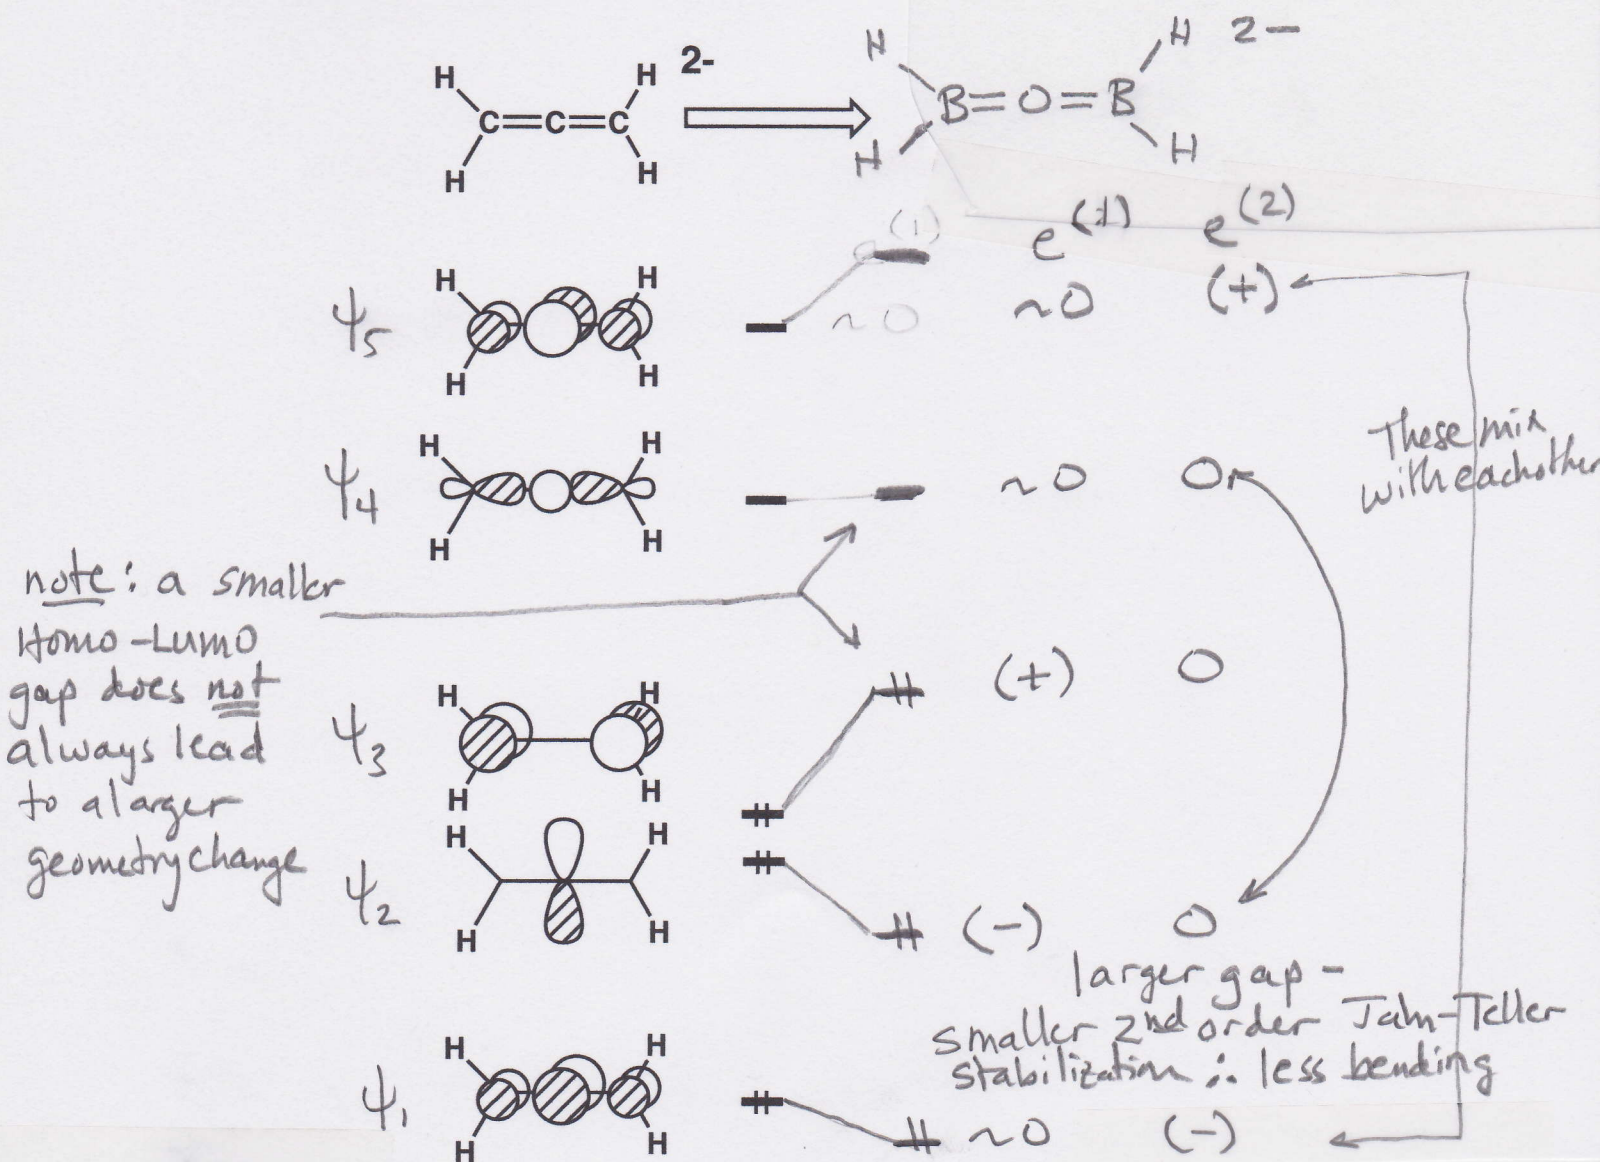 2-
H H
C=C=C
H H
H H 2-
B=O=B
H H
e(1) e(1) e(2)
H H
ψ5 ~0 ~0 (+)
H H
These mix
with eachother
H H
ψ4 ~0 0
H H
note: a smaller
Homo-Lumo
gap does not
always lead
to a larger
geometry change
H H
ψ3 (+) 0
H H
H H
ψ2 (-) 0
H H
larger gap -
smaller 2nd order Jahn-Teller
stabilization ∴ less bending
H H
ψ1 ~0 (-)
H H